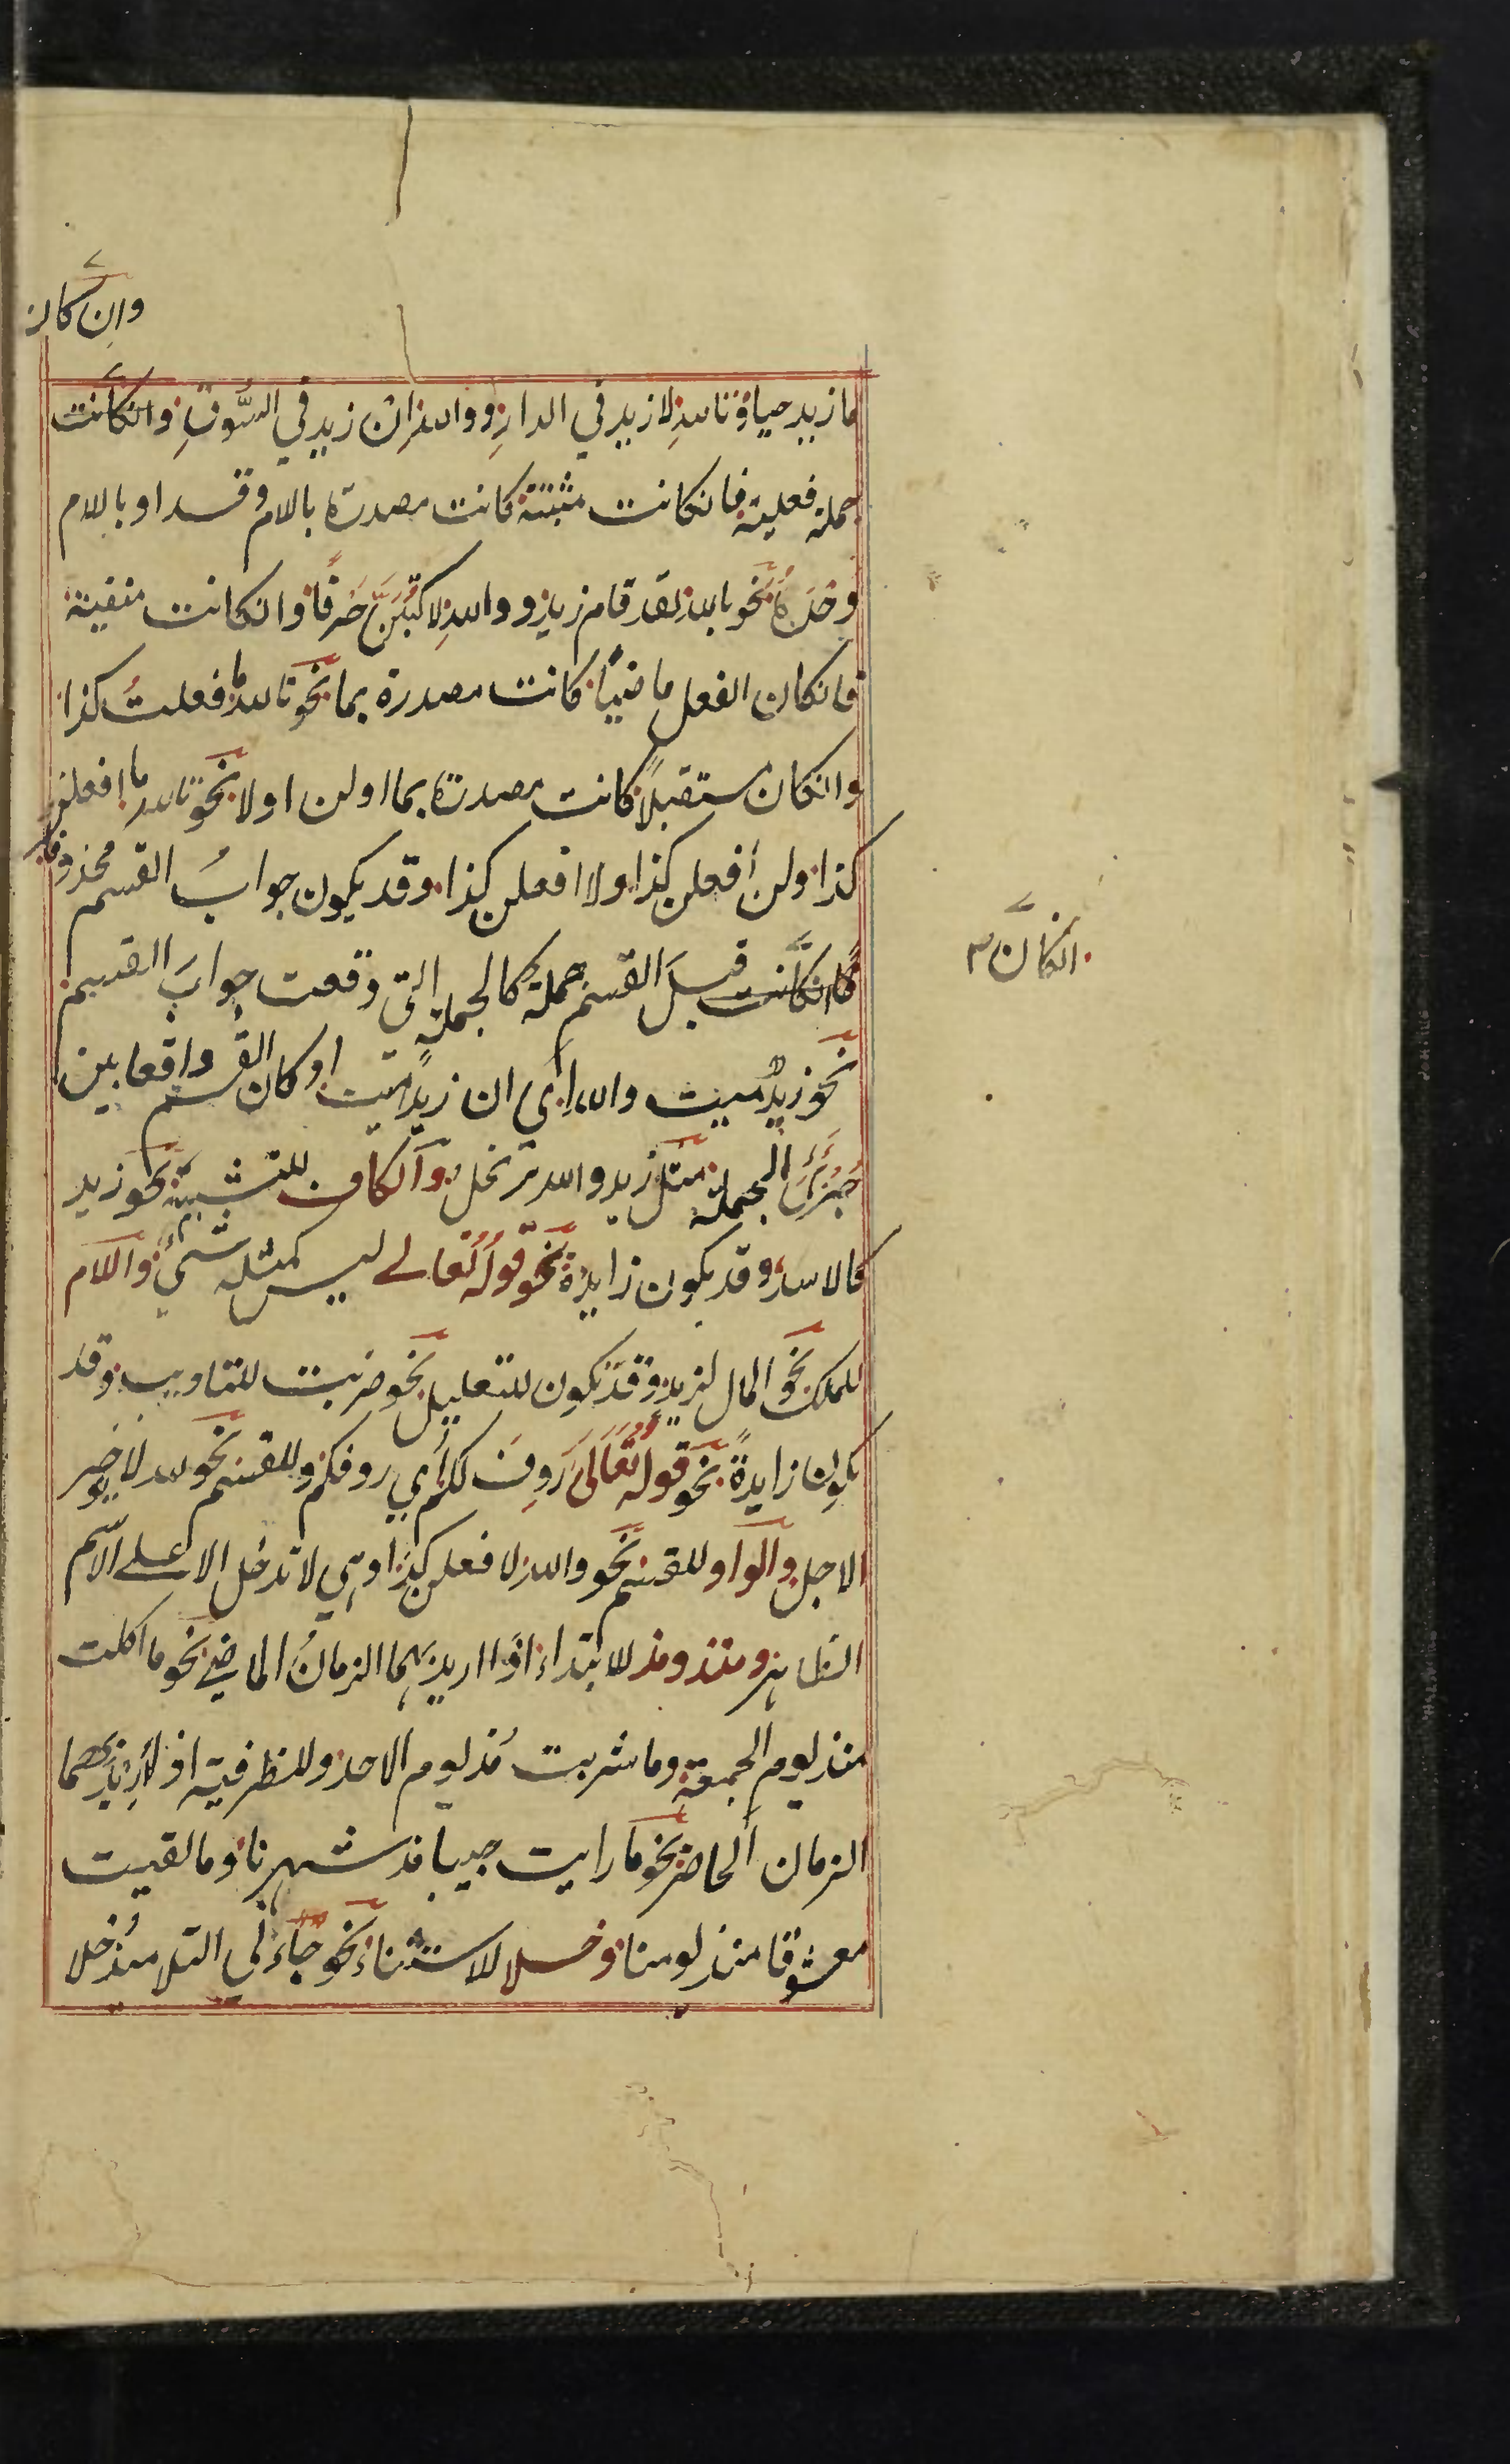 وان كان
ما زيد حيا وتالله لا زيد في الدار ووالله ان زيد في السُّوقِ وانكانت
جملة فعلية فانكانت مثبتة كانت مصدرة بالام وقد او بالام
وحدها نحو بالله لقد قام زيد ووالله لاكتبنَّ حرفًا وانكانت منفية
فانكان الفعل ماضيًا كانت مصدرة بما نحو تالله ما فعلتُ كذا
وانكان مستقبلًا كانت مصدرة بما اولن اولا نحو تالله ما افعلن
كذا ولن أفعلن كذا ولا افعلن كذا وقد يكون جوابُ القسم محذوفا
انكانت قبلَ القسم جملة كالجملة التي وقعت جوابَ القسم
انكان
نحو زيدٌ ميت والله اي ان زيدًا ميت او كان القسم واقعا بين
جزئي الجملة مثل زيد والله رجل والكاف للتشبيه نحو زيد
كالاسد وقد يكون زايدة نحو قوله تعالے ليس كمثله شيٌ واللام
للملك نحو المال لزيد وقد تكون للتعليل نحو ضربت للتاديب وقد
يكون زايدةً نحو قوله تعالى ردف لكم أي ردفكم وللقسم نحو لله لا يوخر
الاجل والواو للقسم نحو والله لافعلن كذا وهي لا تدخل الا على الاسم
الظاهر ومنذ ومذ للابتداء اذا اريد بهما الزمانُ الماضي نحو ما اكلت
منذ يوم الجمعة وما شربت مُذ يوم الاحد وللظرفية اذا أريد بهما
الزمان الحاضر نحو ما رايت حبيبا مذ شهرنا وما لقيت
معشوقا منذ يومنا وخلا للاستثناء نحو جاءني التلاميذ خلا